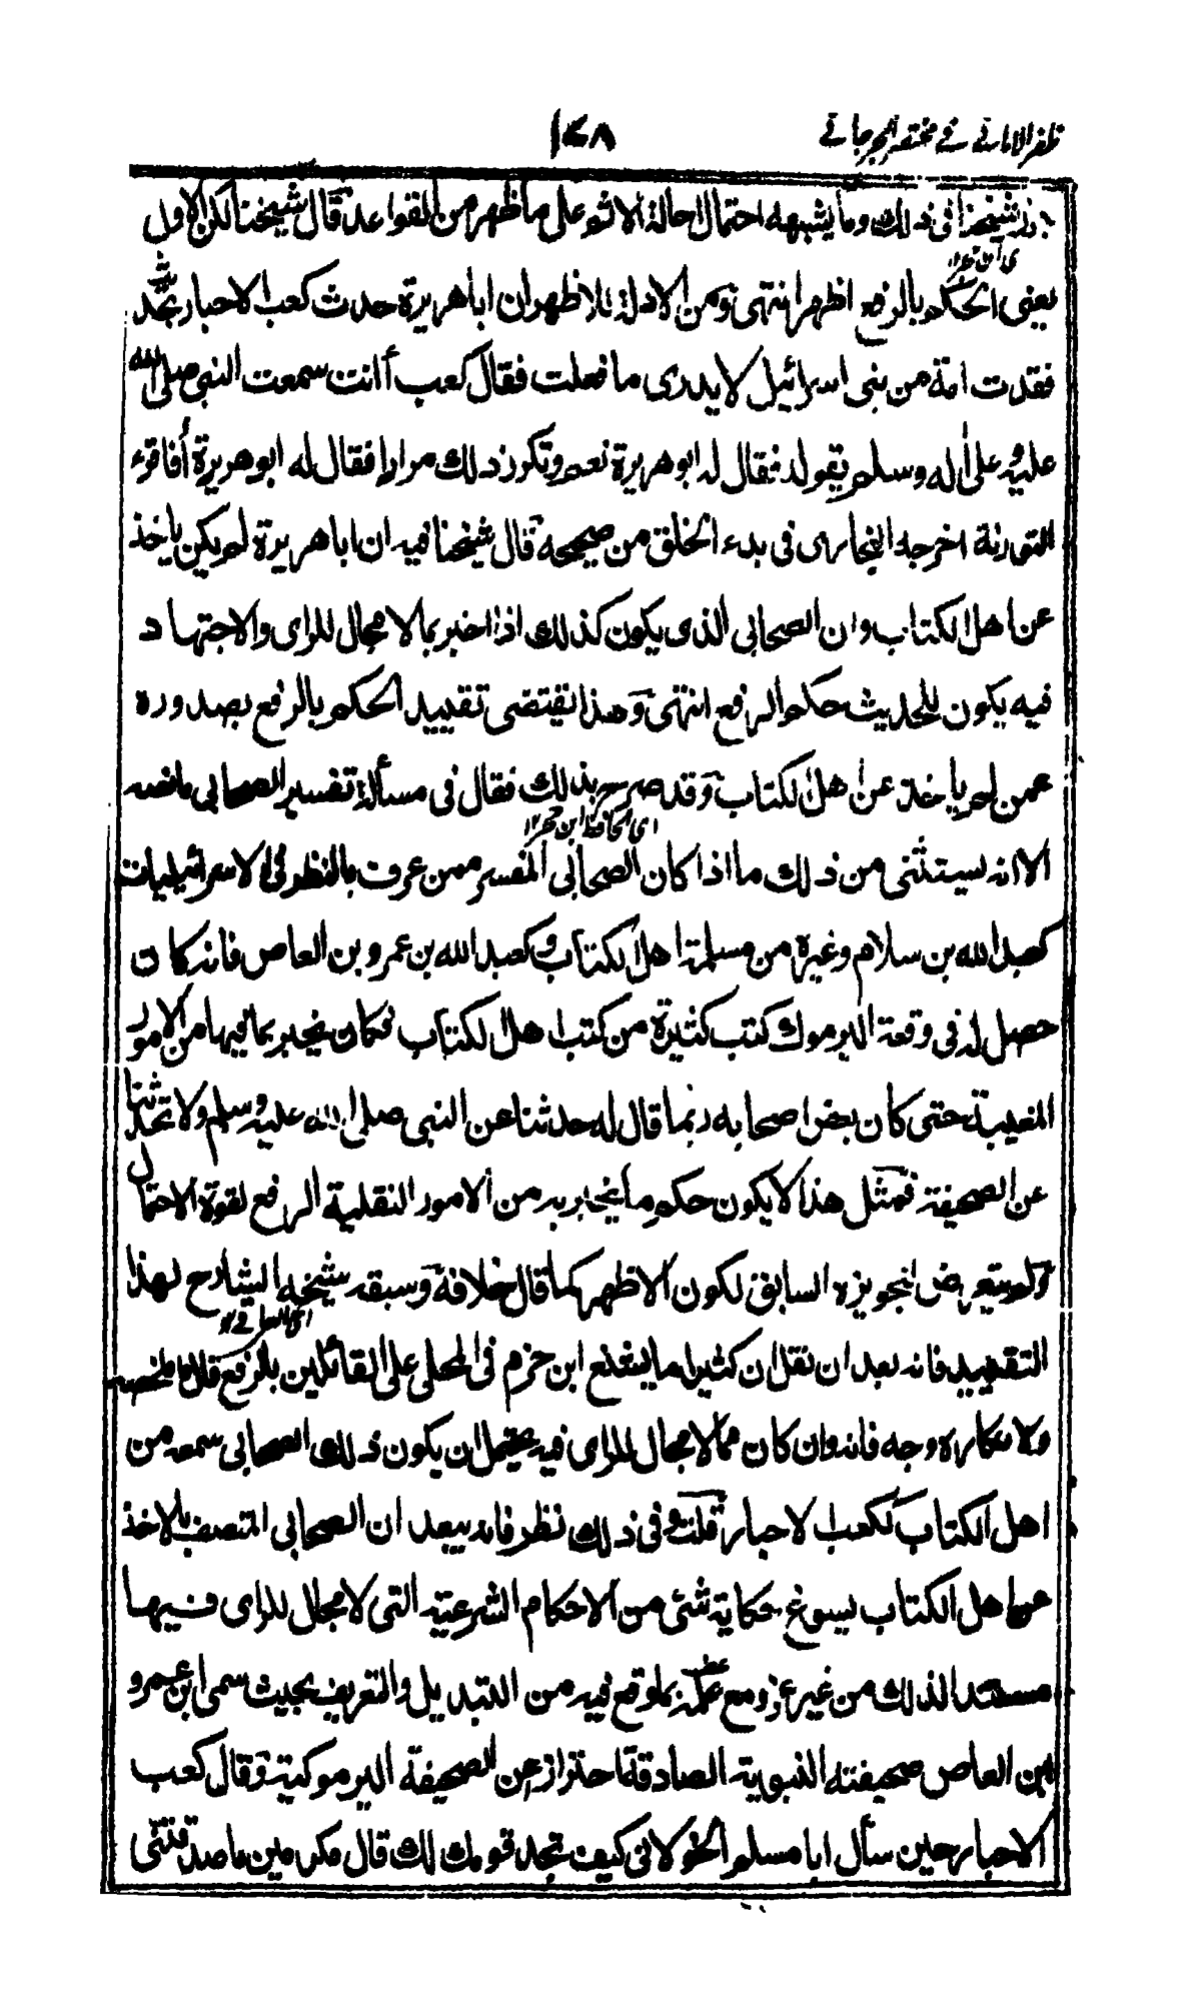 ظفر الامانی فی مختصر الجرجانی ١٧٨
شیخنا فی ذلك وما یشبهه احتمال احالة الاثر علی ما ظهر من القواعد قال شیخنا لكن الاول
ای ابن حجر ١٢
یعنی الحكم بالرفع اظهر انتهی ومن الادلة للاظهر ان ابا هریرة حدث كعب الاحبار بحدیث
فقدت امة من بنی اسرائیل لا یدری ما فعلت فقال كعب أانت سمعت النبی صلی الله
علیه وعلی اله وسلم یقوله فقال له ابو هریرة نعم وتكرر ذلك مرارا فقال له ابو هریرة أفاقرء
التورىة اخرجه البخاری فی بدء الخلق من صحیحه قال شیخنا فیه ان ابا هریرة لم یكن یاخذ
عن اهل الكتاب وان الصحابی الذی یكون كذلك اذا اخبر بما لا مجال للرای والاجتهاد
فیه یكون للحدیث حكم الرفع انتهی وهذا یقتضی تقیید الحكم بالرفع بصدوره
عمن لم یاخذ عن اهل الكتاب وقد صرح بذلك فقال فی مسألة تفسیر الصحابی ما نصه
ای الحافظ ابن حجر ١٢
الا انه یستثنی من ذلك ما اذا كان الصحابی المفسر ممن عرف بالنظر فی الاسرائیلیات
كعبد الله بن سلام وغیره من مسلمة اهل الكتاب وكعبد الله بن عمرو بن العاص فانه كان
حصل له فی وقعة الیرموك كتب كثیرة من كتب اهل الكتاب فكان یخبر بما فیها من الامور
المغیبة حتی كان بعض اصحابه ربما قال له حدثنا عن النبی صلی الله علیه وسلم ولا تحدثنا
عن الصحیفة فمثل هذا لا یكون حكم ما یخبر به من الامور النقلیة الرفع لقوة الاحتمال
ولم یتعرض لتجویزه السابق لكون الاظهر كما قال خلافه وسبقه شیخه الشارح لهذا
ای العراقی ١٢
التقیید فانه بعد ان نقل ان كثیرا ما یشنع ابن حزم فی المحلی علی القائلین بالرفع قال ما نصه
ولانكاره وجه فانه وان كان مما لا مجال للرای فیه یحتمل ان یكون ذلك الصحابی سمعه من
اهل الكتاب ككعب الاحبار قلت وفی ذلك نظر فانه یبعد ان الصحابی المتصف بالاخذ
عن اهل الكتاب یسوغ حكایة شئ من الاحكام الشرعیة التی لا مجال للرای فیها
مستندا لذلك من غیر عزو مع علمه بما وقع فیه من التبدیل والتحریف بحیث سمی ابن عمرو
بن العاص صحیفته النبویة الصادقة احترازا عن الصحیفة الیرموكیة وقال كعب
الاحبار حین سأل ابا مسلم الخولانی كیف تجد قومك لك قال مكرمین ما صدقتنی